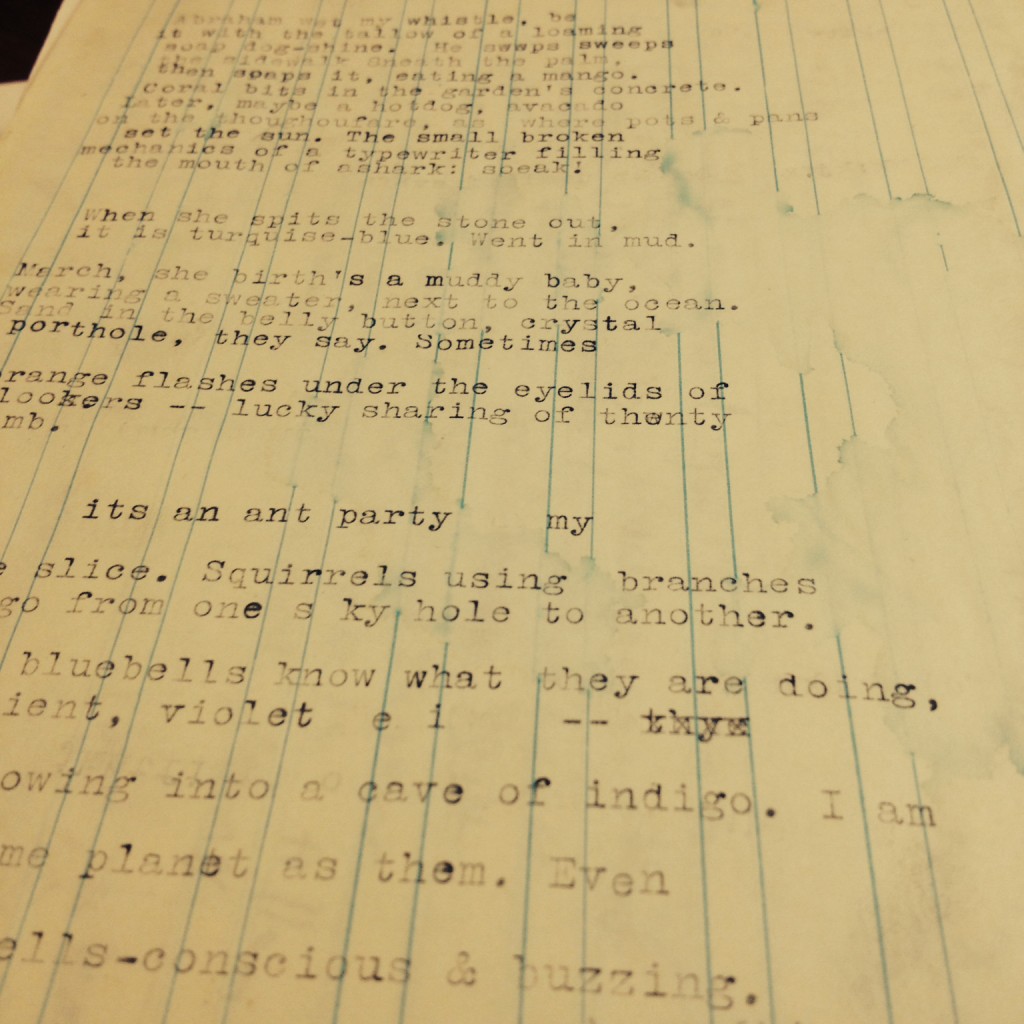 Abraham wet my whistle. be
it with the tallow of a loaming
soap dog-shine. He swwps sweeps
the sidewalk gneath the palm,
then soaps it, eating a mango.
Coral bits in the garden's concrete.
Later, maybe a hotdog, avacado
on the thoughoufare, as where pots & pans
set the sun. The small broken
mechanics of a typewriter filling
the mouth of ashark: speak!
When she spits the stone out,
it is turquise-blue. Went in mud.
March, she birth's a muddy baby,
wearing a sweater, next to the ocean.
Sand in the belly button, crystal
porthole, they say. Sometimes
range flashes under the eyelids of
lookers -- lucky sharing of
mb.
its an ant party my
e slice. Squirrels using branches
go from one s ky hole to another.
bluebells know what they are doing,
ient, violet e i --
owing into a cave of indigo. I am
me planet as them. Even
ells-conscious & buzzing.